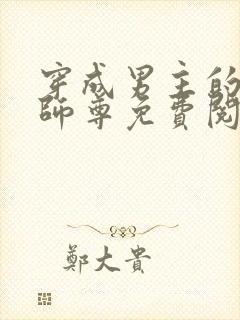 穿成男主的
師尊免費閱
鄭大貴